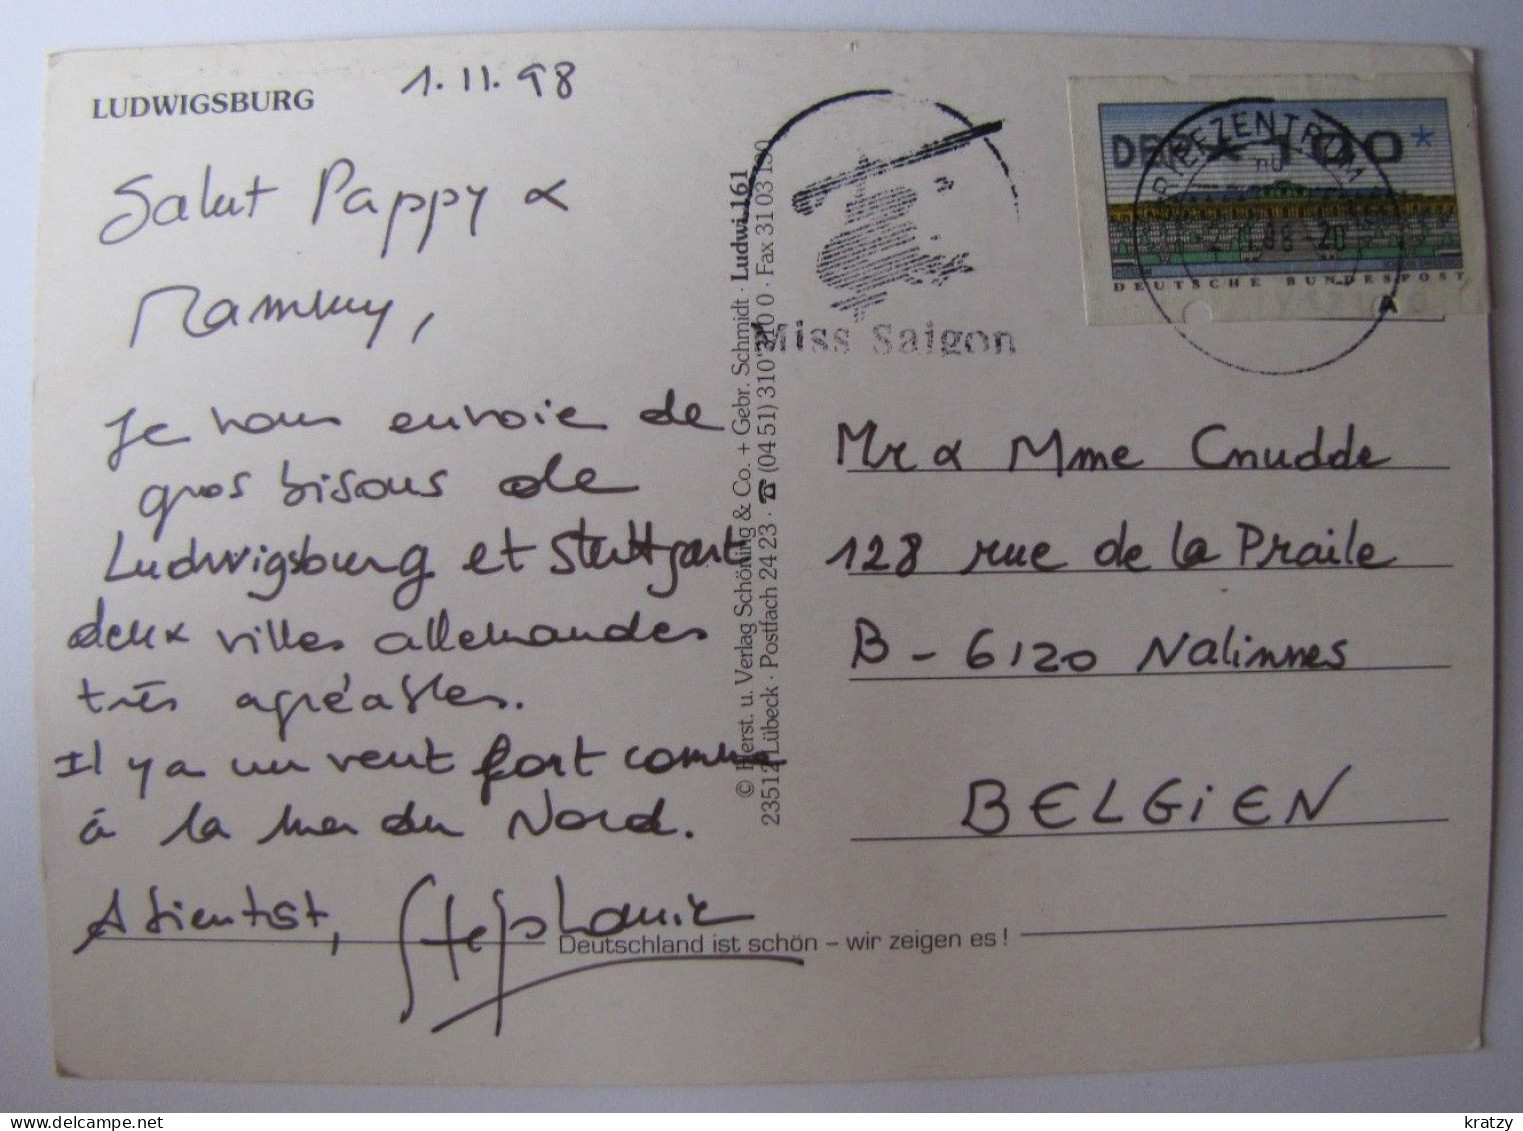 LUDWIGSBURG
1.11.98
Salut Pappy &
Mammy,
Je vous envoie de
gros bisous de
Ludwigsburg et Stuttgart
deux villes allemandes
très agréables.
Il y a un vent fort comme
à la mer du Nord.
A bientôt, Stéphanie
© Herst. u. Verlag Schöning & Co. + Gebr. Schmidt · Ludwi 161
23512 Lübeck · Postfach 24 23 · ☎ (04 51) 310 310 0 · Fax 31 03 130
Miss Saigon
DBP * 100 *
DEUTSCHE BUNDESPOST
BRIEFZENTRUM
A
Mr & Mme Cnudde
128 rue de la Praile
B - 6120 Nalinnes
BELGiEN
Deutschland ist schön – wir zeigen es !
kratzy